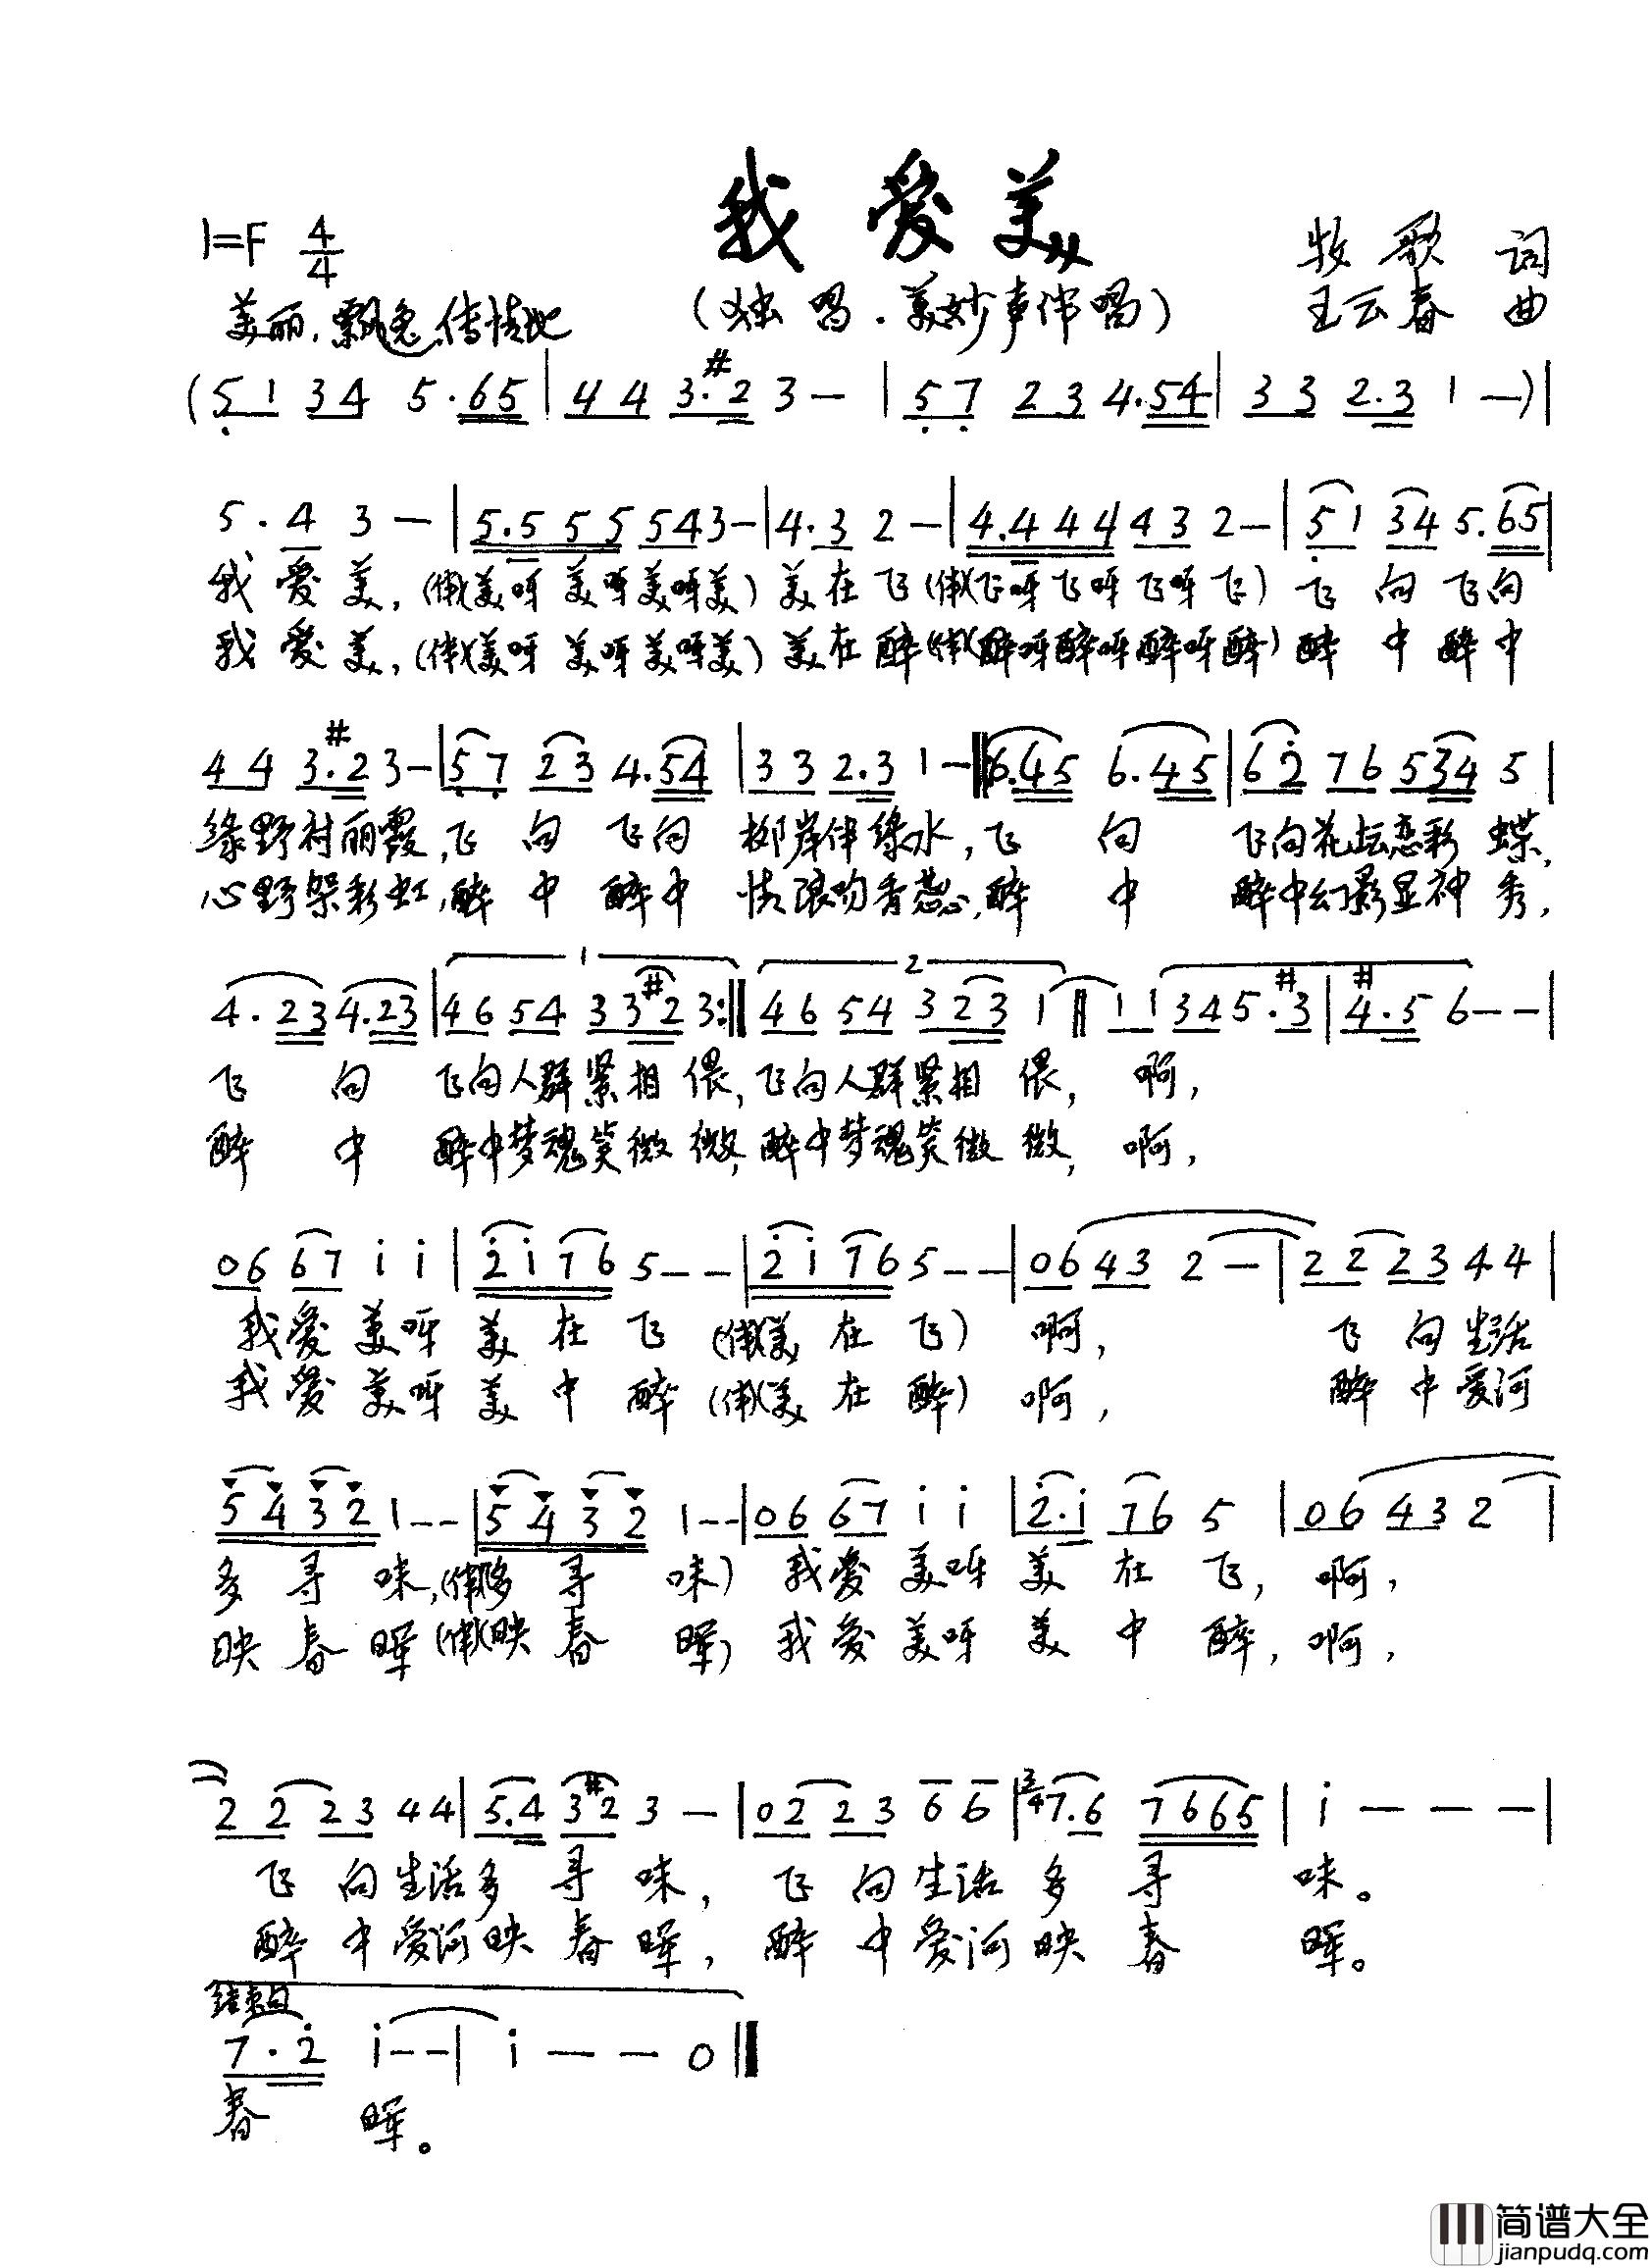 我爱美
1=F 4/4
牧歌 词
美丽、飘逸、传情地
(独唱·美妙声伴唱)
王云春 曲
(5 1 3 4 5·65 | 4 4 3·#2 3 — | 5 7 2 3 4·54 | 3 3 2·3 1 —)|
5·4 3 — | 5·5 5 5 5 4 3— | 4·3 2 — | 4·4 4 4 4 3 2 — | 5 1 3 4 5·65 |
我爱美,(伴)(美呀美呀美呀美)美在飞(伴)(飞呀飞呀飞呀飞)飞向飞向
我爱美,(伴)(美呀美呀美呀美)美在醉(伴)(醉呀醉呀醉呀醉)醉中醉中
4 4 3·#2 3— | 5 7 2 3 4·54 | 3 3 2·3 1— ‖ 6·45 6·45 | 6 2̇ 7 6 5 3 4 5 |
绿野衬丽霞,飞向飞向柳岸伴绿水,飞向飞向花坛恋彩蝶,
心野架彩虹,醉中醉中情浪吻香蕊,醉中醉中幻影显神秀,
1 2
4·23 4·23 | 4 6 5 4 3 3 #2 3 :‖ 4 6 5 4 3 2 3 1 ‖ 1 1 3 4 5·#3 | #4·5 6 — — |
飞向飞向人群紧相偎,飞向人群紧相偎,啊,
醉中醉中梦魂笑微微,醉中梦魂笑微微,啊,
0 6 6 7 i i | 2̇ i 7 6 5 — — | 2̇ i 7 6 5 — — | 0 6 4 3 2 — | 2 2 2 3 4 4 |
我爱美呀美在飞(伴)(美在飞)啊,飞向生活
我爱美呀美中醉(伴)(美在醉)啊,醉中爱河
5 4 3 2 1 — — | 5 4 3 2 1 — — | 0 6 6 7 i i | 2̇·i 7 6 5 | 0 6 4 3 2 |
多寻味,(伴)(多寻味)我爱美呀美在飞,啊,
映春晖(伴)(映春晖)我爱美呀美中醉,啊,
2 2 2 3 4 4 | 5·4 3 #2 3 — | 0 2 2 3 6 6 | 3/4 7·6 7 6 6 5 | i — — — |
飞向生活多寻味,飞向生活多寻味。
醉中爱河映春晖,醉中爱河映春晖。
结束句
7·2̇ i — — | i — — 0 ‖
春晖。
简谱大全
jianpudq.com